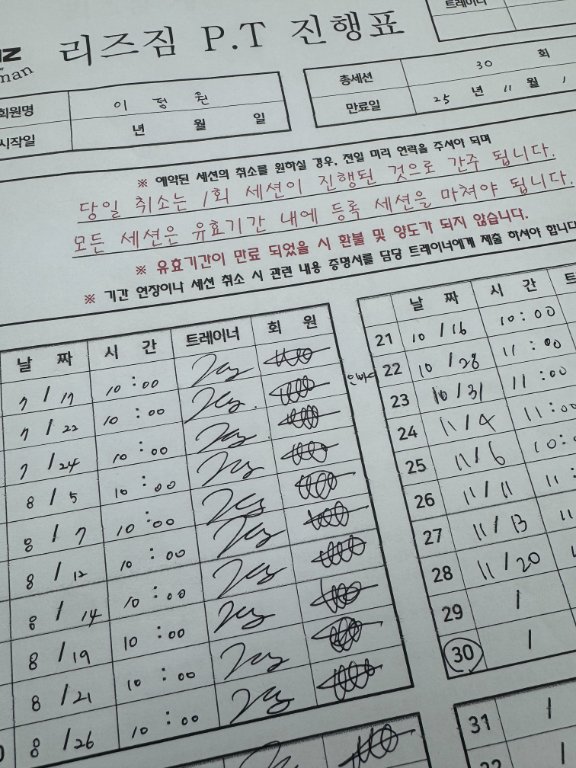 리즈짐 P.T 진행표
트레이너
회원명 이정원
시작일 년 월 일
총세션 30 회
만료일 25 년 11 월
※ 예약된 세션의 취소를 원하실 경우, 전일 미리 연락을 주셔야 되며
당일 취소는 1회 세션이 진행된 것으로 간주 됩니다.
모든 세션은 유효기간 내에 등록 세션을 마쳐야 됩니다.
※ 유효기간이 만료 되었을 시 환불 및 양도가 되지 않습니다.
※ 기간 연장이나 세션 취소 시 관련 내용 증명서를 담당 트레이너에게 제출 하셔야 합니다
날 짜 시 간 트레이너 회 원
7 / 17 10 : 00
7 / 22 10 : 00
7 / 24 10 : 00
8 / 5 10 : 00
8 / 7 10 : 00
8 / 12 10 : 00
8 / 14 10 : 00
8 / 19 10 : 00
8 / 21 10 : 00
8 / 26 10 : 00
날 짜 시 간
21 10 / 16 10 : 00
22 10 / 28 11 : 00
23 10 / 31 11 : 00
24 11 / 4 11 : 00
25 11 / 6 10 :
26 11 / 11 11 :
27 11 / 13 11
28 11 / 20
29 /
30 /
31 /